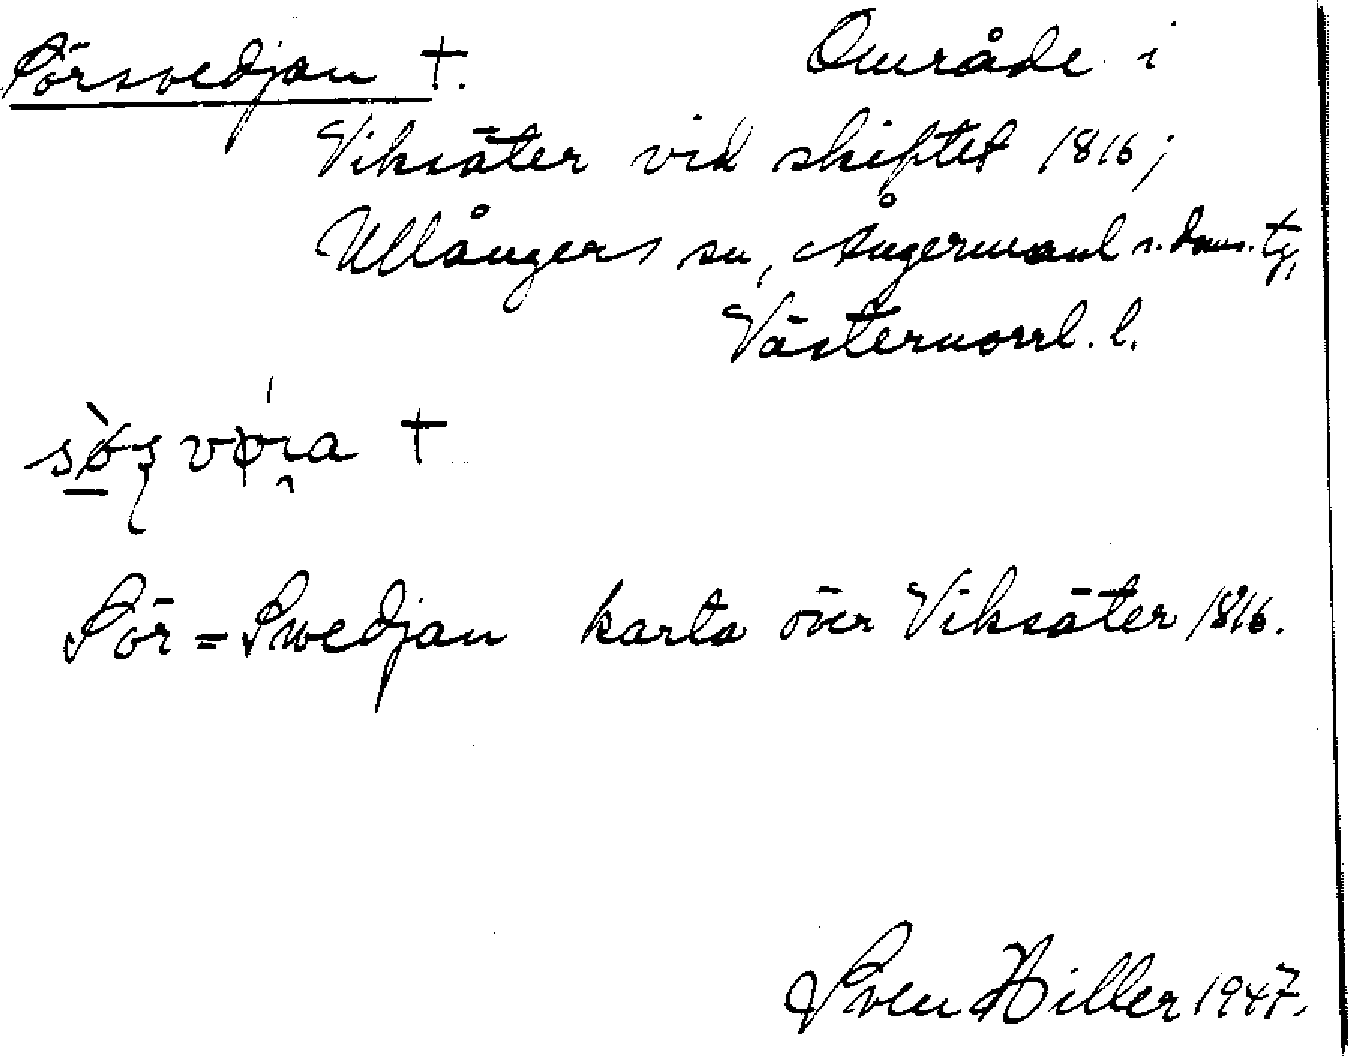 Sörsvedjan †. Område i
Viksäter vid skiftet 1816;
Ullångers sn, Ångermanl s. doms. tg,
Västernorrl. l.
†
Sör=Swedjan karta över Viksäter 1816.
Sven Hiller 1947.